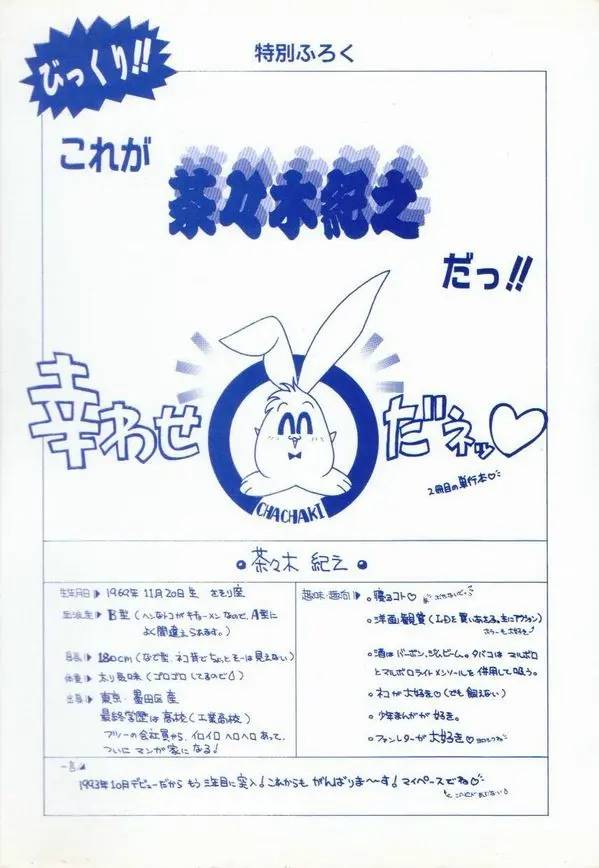 びっくり!!
特別ふろく
これが
茶々木紀之
だっ!!
幸わせ
だネッ♡
2冊目の単行本♡
CHACHAKI
•茶々木 紀之•
生年月日▶ 1969年 11月20日生 さそり座
血液型▶ B型(ヘンなトコがキチョーメンなので、A型に
よく間違えられます。)
身長▶ 180cm(なで型、ネコ背でちょっとそーは見えない)
体重▶ 太り気味(ゴロゴロしてるので♪)
出身▶ 東京・墨田区産
最終学歴は高校(工業高校)
フツーの会社員から、イロイロ ヘロヘロ あって、
ついに マンガ家になる!
趣味・趣向▶ ◦寝るコト♡
◦洋画観賞(LDを買いあさる。主にアクション)
ホラーも大好き♡
◦酒はバーボン、ジムビーム。タバコは マルボロ
とマルボロライトメンソールを併用して吸う。
◦ネコが大好き♡(でも飼えない)
◦少年まんがが好き。
◦ファンレターが大好き♡
一言
1993年10月デビューだから もう 3年目に突入! これからも がんばりま〜す! マイペースでね♡